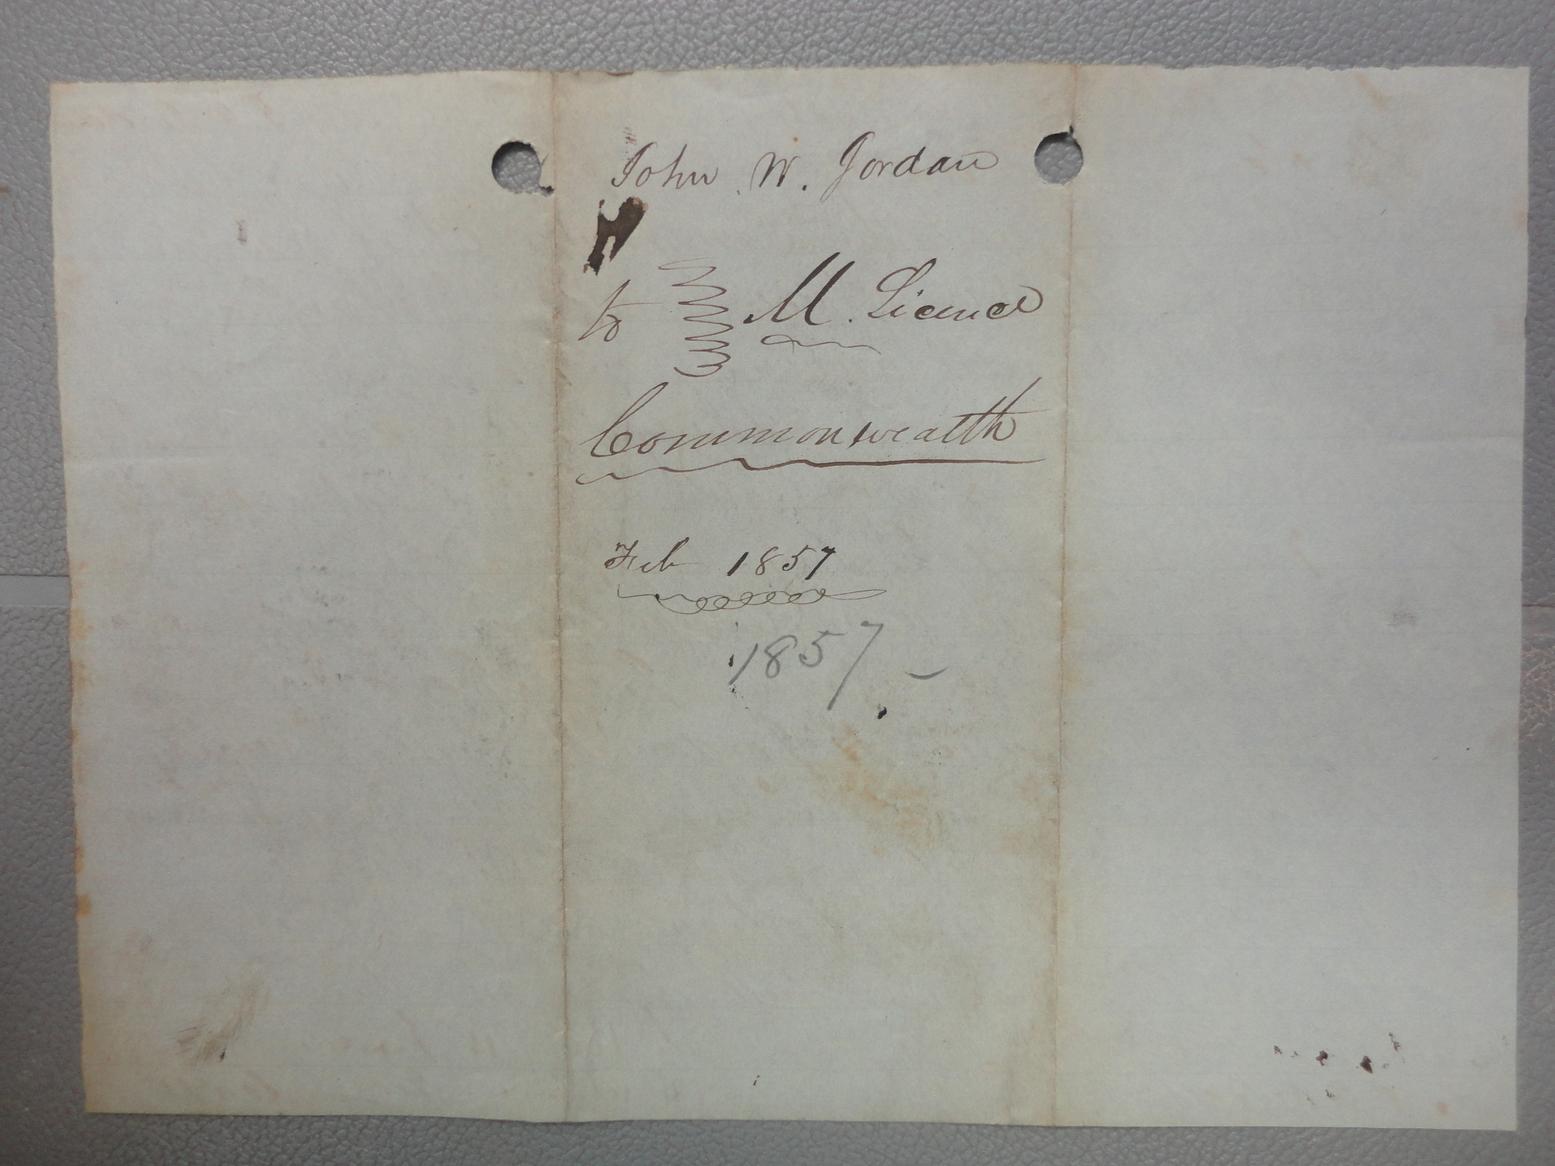 John W. Jordan
to M. Licence
Commonwealth
Feb 1857
1857 -